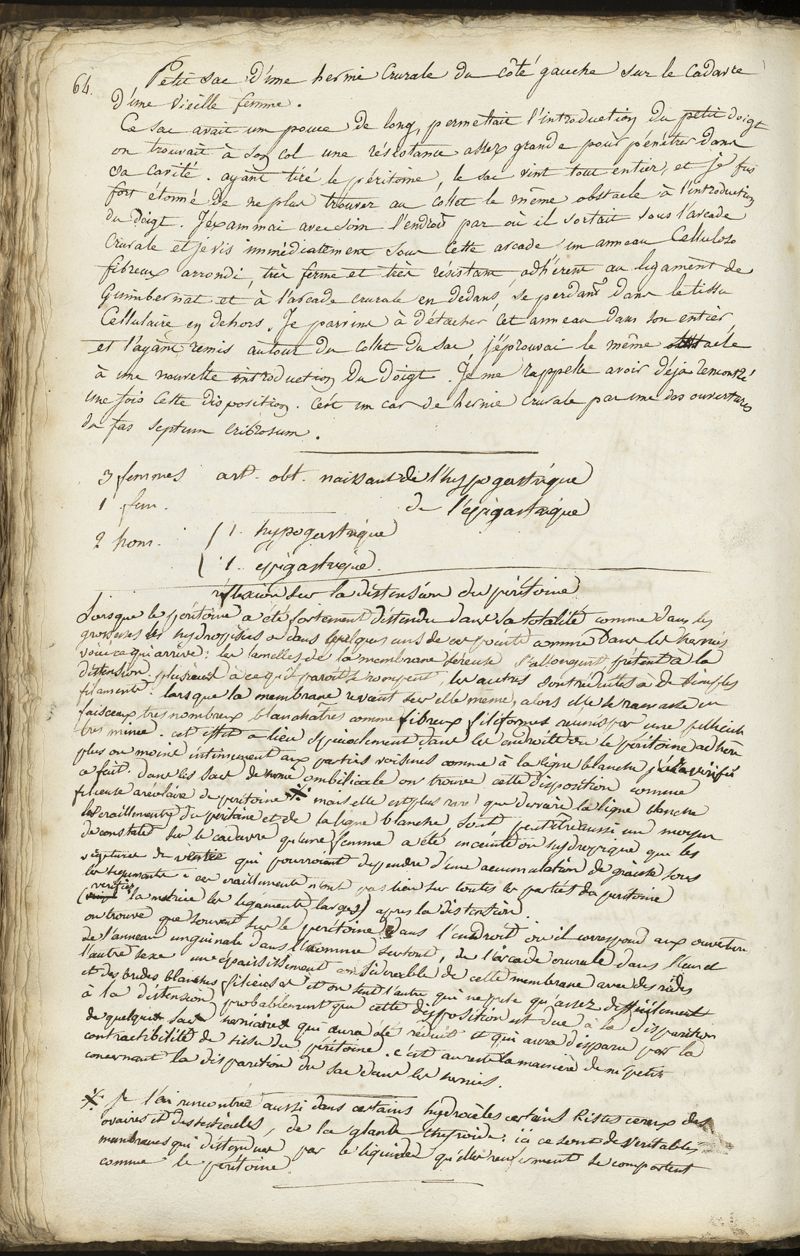 64.
Petit sac d'une hernie crurale du côté gauche sur le cadavre
d'une vieille femme.
Ce sac avait un pouce de long, permettait l'introduction du petit doigt
on trouvait à son col une résistance assez grande pour pénétrer dans
sa cavité. ayant tiré le péritoine, le sac vint tout entier, et je fus
fort étonné de ne plus trouver au collet le même obstacle à l'introduction
du doigt. J'examinai avec soin l'endroit par où il sortait sous l'arcade
crurale et je vis immédiatement sous cette arcade un anneau celluloso
fibreux arrondi, très ferme et très résistant, adhérent au ligament de
Gimbernat et à l'arcade crurale en dedans, se perdant dans le tissu
cellulaire en dehors. Je parvins à détacher cet anneau dans son entier
et l'ayant remis autour du collet du sac j'éprouvai le même obstacle
à une nouvelle introduction du doigt. Je me rappelle avoir déjà rencontré
une fois cette disposition. c'est un cas de hernie crurale par une des ouvertures
du fas septum cribrosum.
3 femmes art. obt. naissant de l'hypogastrique
1 fem. de l'épigastrique
2 hom. ( 1. hypogastrique
( 1. épigastrique.
réflexion sur la distension du péritoine
Lorsque le péritoine a été fortement distendu dans sa totalité comme dans les
grossesses les hydropisies ou dans quelques uns de ces points comme dans les hernies
voici ce qui arrive: les lamelles de la membrane séreuse s'allongent, prêtent à la
distension. plusieurs à ce qu'il paroît se rompent, les autres sont réduites à de simples
filaments. lorsque la membrane revient sur elle même, alors elle se ramasse en
faisceaux très nombreux blanchâtres comme fibreux filiformes reunis par une pellicule
très mince. cet effet a lieu spécialement dans les endroits où le péritoine adhère
plus ou moins intimement aux parties voisines comme à la ligne blanche j'ai vérifié
a fait. dans les sacs de hernie ombilicale on trouve cette disposition comme
filieuse aréolaire du péritoine mais elle est plus rare que derrière la ligne blanche
les eraillements du péritoine et de la ligne blanche sont peut être aussi un moyen
de constater sur le cadavre qu'une femme a été enceinte ou hydropique que les
qui pourroient dépendre d'une accumulation de graisse sous
les téguments. ces eraillements n'ont pas lieu sur toutes les parties du péritoine
(vérifier la matrice les ligaments larges) après la distension.
on trouve que souvent sur le péritoine dans l'endroit où il correspond aux ouvertures
de l'anneau inguinale dans l'homme surtout, de l'arcade crurale dans l'un et
l'autre sexe un épaississement considérable de cette membrane avec des rides
et des brides blanches filieuses et qui ne prête qu'assez difficilement
à la distension probablement que cette disposition est due à la disparition
de quelque sac herniaire qui aura été réduit et qui aura disparu par la
contractibilité de tissu du péritoine. c'est au reste la manière de mr petit
concernant la disparition du sac dans les hernies.
Je l'ai rencontrée aussi dans certains hydrocèles certains kistes sereux des
ovaires et des testicules, de la glande thyroïde; ici ce sont de véritables
membranes qui distendues par le liquide qu'elles renferment se comportent
comme le péritoine.